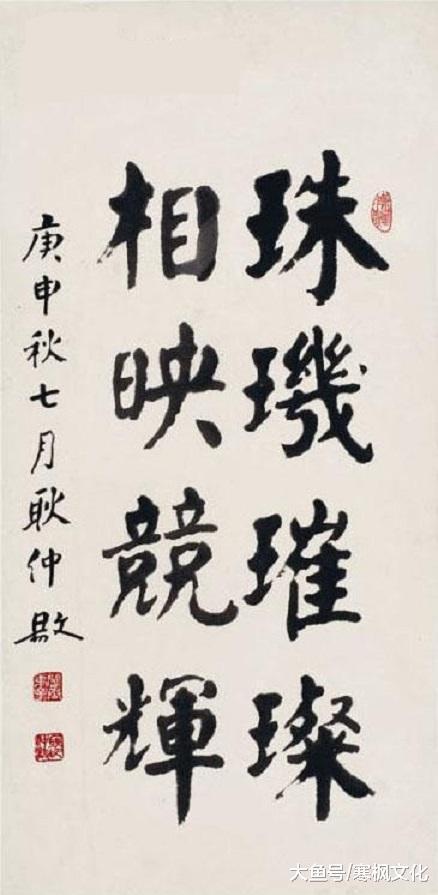 珠璣璀璨
相映競輝
庚申秋七月耿仲敭
大鱼号/寒枫文化